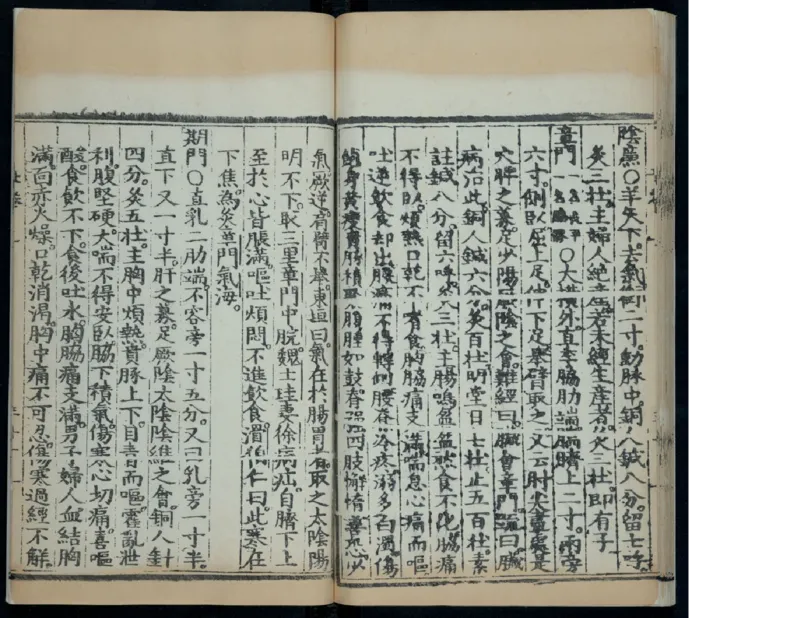 陰廉○羊矢下。去氣衝二寸。動脉中。銅人鍼八分。留七呼。
灸三壯。主婦人絶産。若未經生産者。灸三壯。即有子
章門 ○大橫外。直季脇肋端。當臍上二寸。兩旁
六寸。側臥。屈上足。伸下足。擧臂取之。又云肘尖盡處是
穴。脾之募。足少陽厥陰之會。難經曰。臟會章門。疏曰。臟
病治此。銅人鍼六分。灸百壯。明堂日七壯。止五百壯。素
註鍼八分。留六呼。灸三壯。主腸鳴盆盆然。食不化。脇痛
不得臥。煩熱口乾。不嗜食。胸脇痛支滿。喘息。心痛而嘔。
吐逆。飮食却出。腰痛不得轉側。腰脊冷疼。溺多白濁。傷
飽身黃瘦。賁豚積聚。腹腫如鼓。脊强。四肢懈惰。善恐。少
氣厥逆。肩臂不擧。東垣曰。氣在於腸胃者。取之太陰陽
明。不下。取三里章門中脘。魏士珪妻徐病疝。自臍下上
至於心皆脹滿。嘔吐煩悶。不進飮食。滑伯仁曰。此寒在
下焦。為灸章門氣海。
期門○直乳二肋端。不容旁一寸五分。又曰乳旁一寸半。
直下又一寸半。肝之募。足厥陰太陰陰維之會。銅人針
四分。灸五壯。主胸中煩熱。賁豚上下。目青而嘔。霍亂泄
利。腹堅硬。大喘不得安臥。脇下積氣。傷寒心切痛。喜嘔
酸。食飮不下。食後吐水。胸脇痛支滿。男子婦人血結胸
滿。面赤火燥。口乾消渴。胸中痛不可忍。傷寒過經不解。